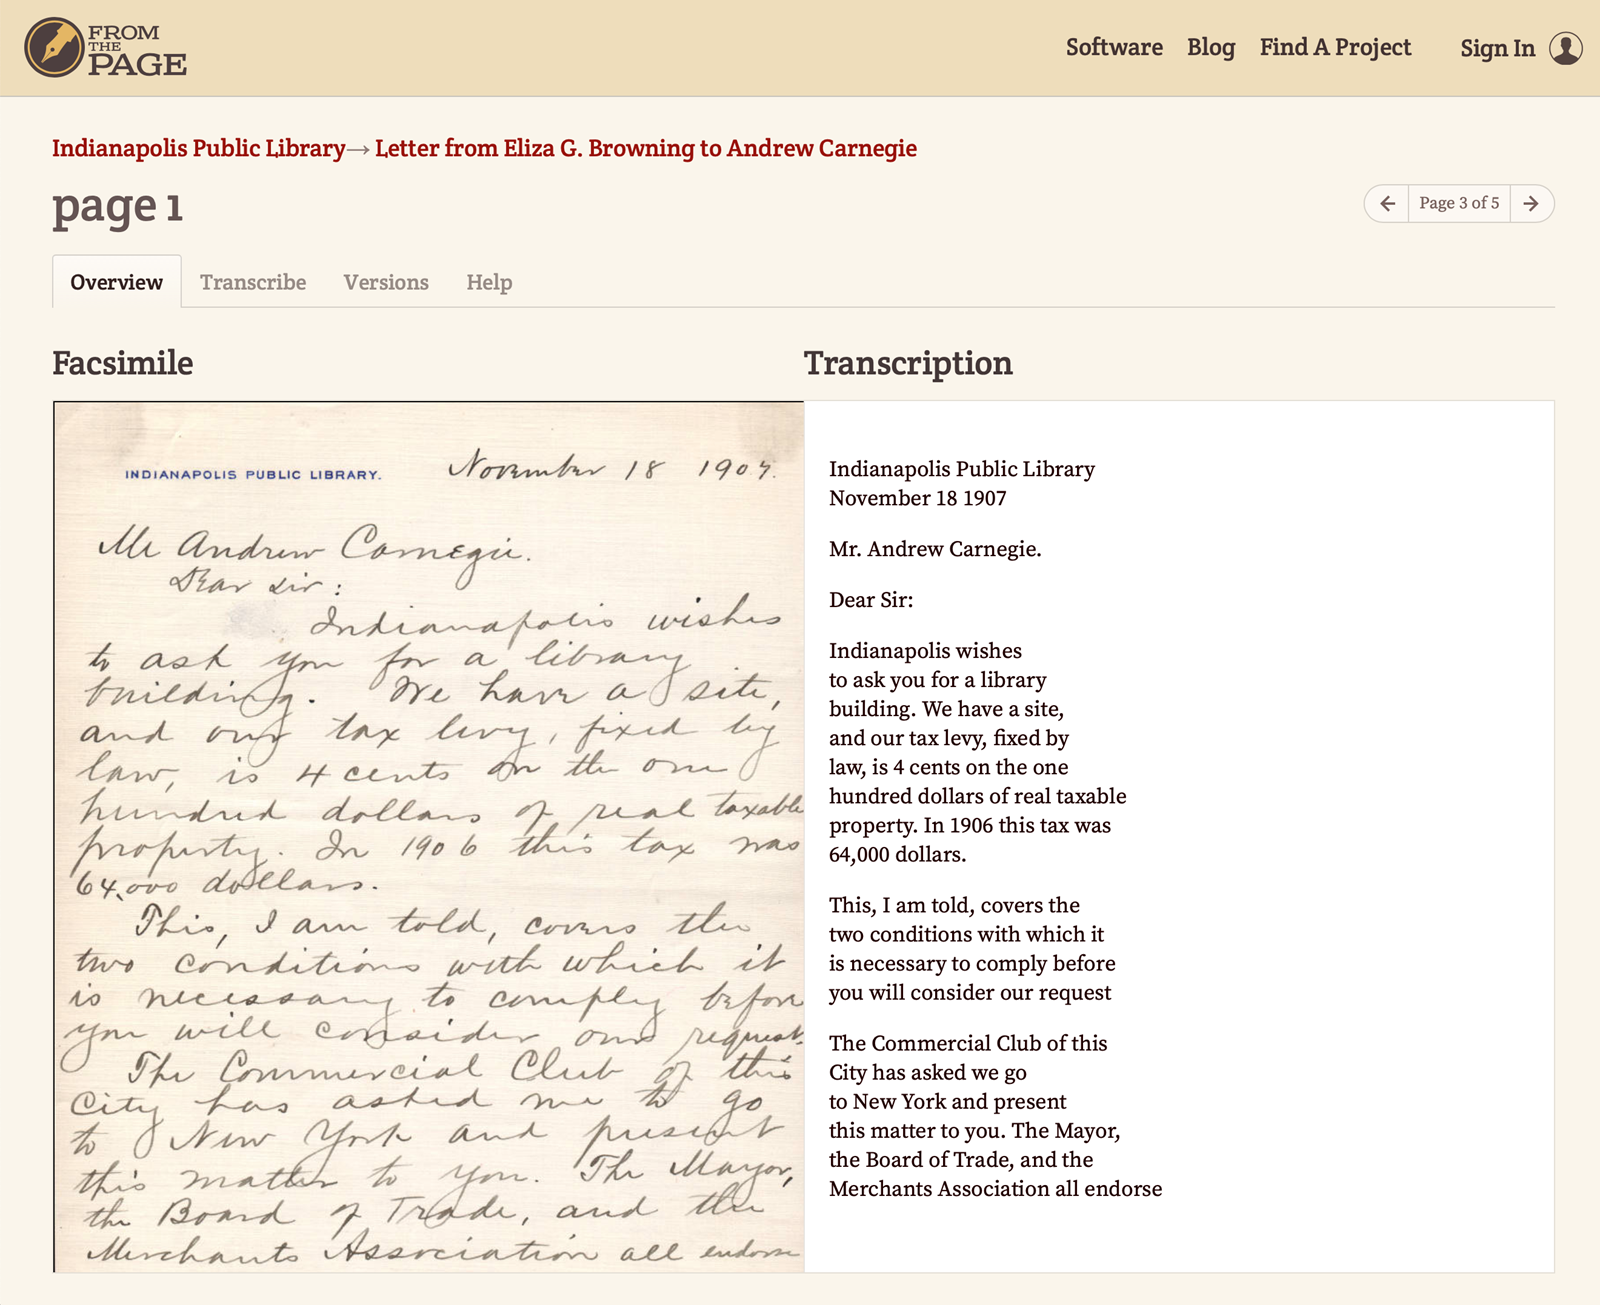 FROM
THE
PAGE
Software Blog Find A Project Sign In
Indianapolis Public Library→ Letter from Eliza G. Browning to Andrew Carnegie
page 1
← Page 3 of 5 →
Overview Transcribe Versions Help
Facsimile
INDIANAPOLIS PUBLIC LIBRARY. November 18 1907.
Mr Andrew Carnegie.
Dear Sir:
Indianapolis wishes
to ask you for a library
building. We have a site,
and our tax levy, fixed by
law, is 4 cents on the one
hundred dollars of real taxable
property. In 1906 this tax was
64,000 dollars.
This, I am told, covers the
two conditions with which it
is necessary to comply before
you will consider our request.
The Commercial Club of this
City has asked me to go
to New York and present
this matter to you. The Mayor,
the Board of Trade, and the
Merchants Association all endorse
Transcription
Indianapolis Public Library
November 18 1907
Mr. Andrew Carnegie.
Dear Sir:
Indianapolis wishes
to ask you for a library
building. We have a site,
and our tax levy, fixed by
law, is 4 cents on the one
hundred dollars of real taxable
property. In 1906 this tax was
64,000 dollars.
This, I am told, covers the
two conditions with which it
is necessary to comply before
you will consider our request
The Commercial Club of this
City has asked we go
to New York and present
this matter to you. The Mayor,
the Board of Trade, and the
Merchants Association all endorse